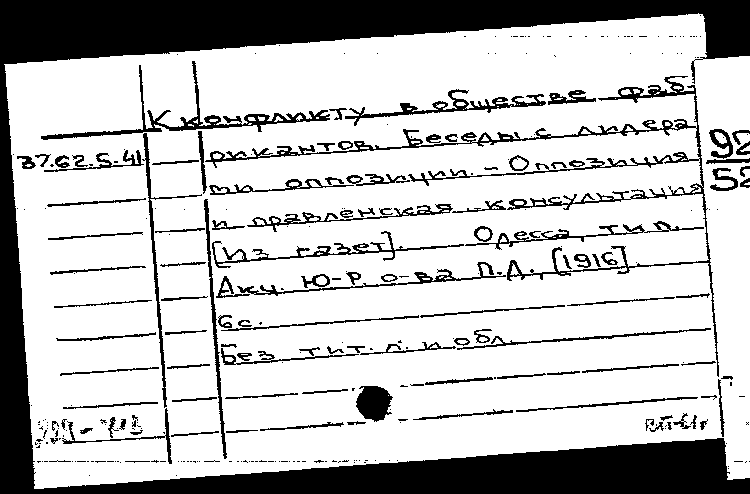 К конфликту в обществе фаб-
37.62.5.41
рикантов. Беседы с лидера
ми оппозиции. - Оппозиция
и правленская консультация
[Из газет]. Одесса, тип.
Акц. Ю-Р. о-ва П.Д., [1916].
6с.
Без тит. л. и обл.
92
52